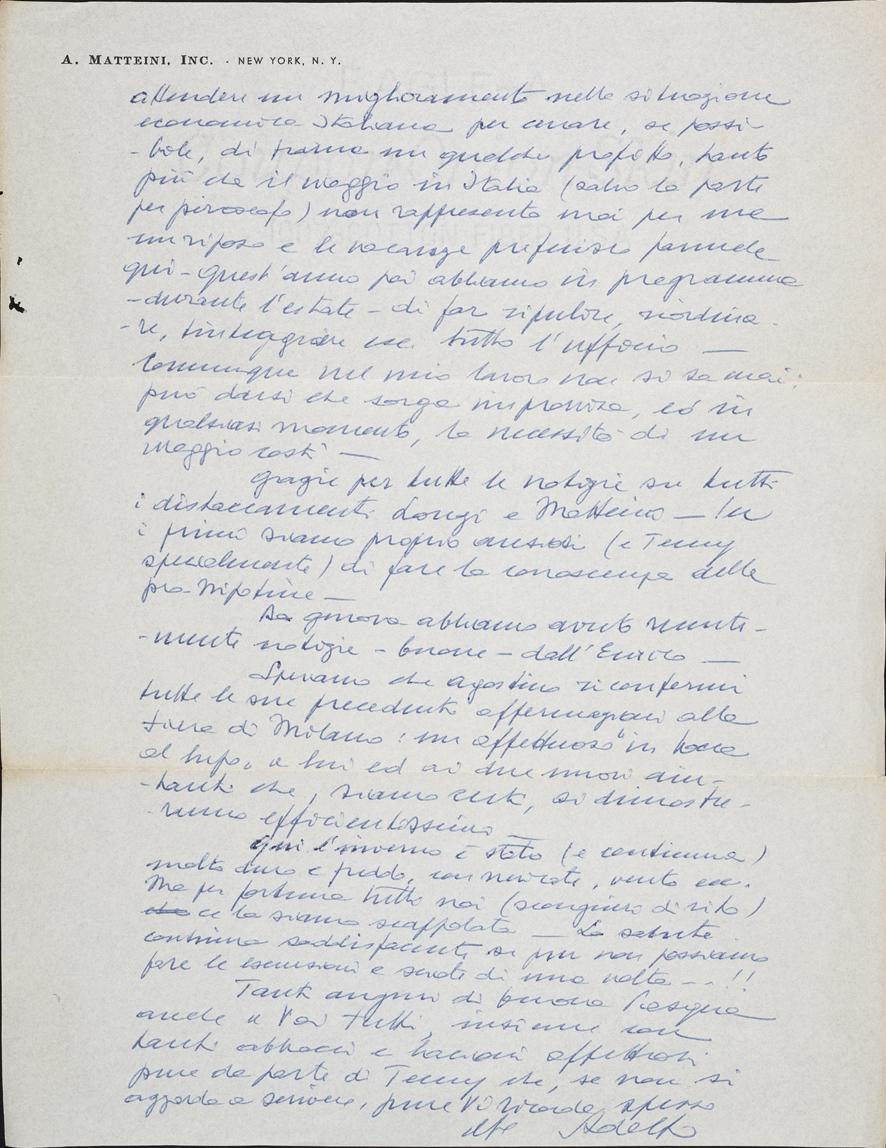 A. MATTEINI, INC. - NEW YORK, N. Y.
attendere un miglioramento nella situazione
economica Italiana per cercare, se possi-
-bile, di trarne un qualche profitto, tanto
più che il viaggio in Italia (salvo la parte
per piroscafo) non rappresenta mai per me
un riposo e le vacanze preferisco farmele
qui - quest'anno poi abbiamo in programma
- durante l'estate - di far ripulire, riordina-
-re, tinteggiare ecc tutto l'ufficio —
Comunque nel mio lavoro non si sa mai:
può darsi che sorga improvvisa, ed in
qualsiasi momento, la necessità di un
viaggio costì —
Grazie per tutte le notizie su tutti
i distaccamenti Longi e Matteini — 
i primi siamo proprio ansiosi (e Temy
specialmente) di fare la conoscenza delle
pro-nipotine —
Da Genova abbiamo avuto recente-
-mente notizie - buone - dall'Enrico —
Speriamo che Agostino riconfermi
tutte le sue precedenti affermazioni alla
Fiera di Milano: un affettuoso "in bocca
al lupo" a lui ed ai due nuovi aiu-
-tanti che, siamo certi, si dimostre-
-ranno efficientissimi —
Qui l'inverno è stato (e continua)
molto duro e freddo, con nevicate, vento ecc.
Ma per fortuna tutti noi (scongiuri di rito)
ce la siamo scappolata — La salute
continua soddisfacente se pur non possiamo
fare le escursioni e serate di una volta - - !!
Tanti auguri di buona Pasqua
anche a Voi tutti, insieme con
tanti abbracci e bacioni affettuosi
pure da parte di Temy che, se non si
azzarda a scrivere, pure Vi ricorda spesso
Adolfo